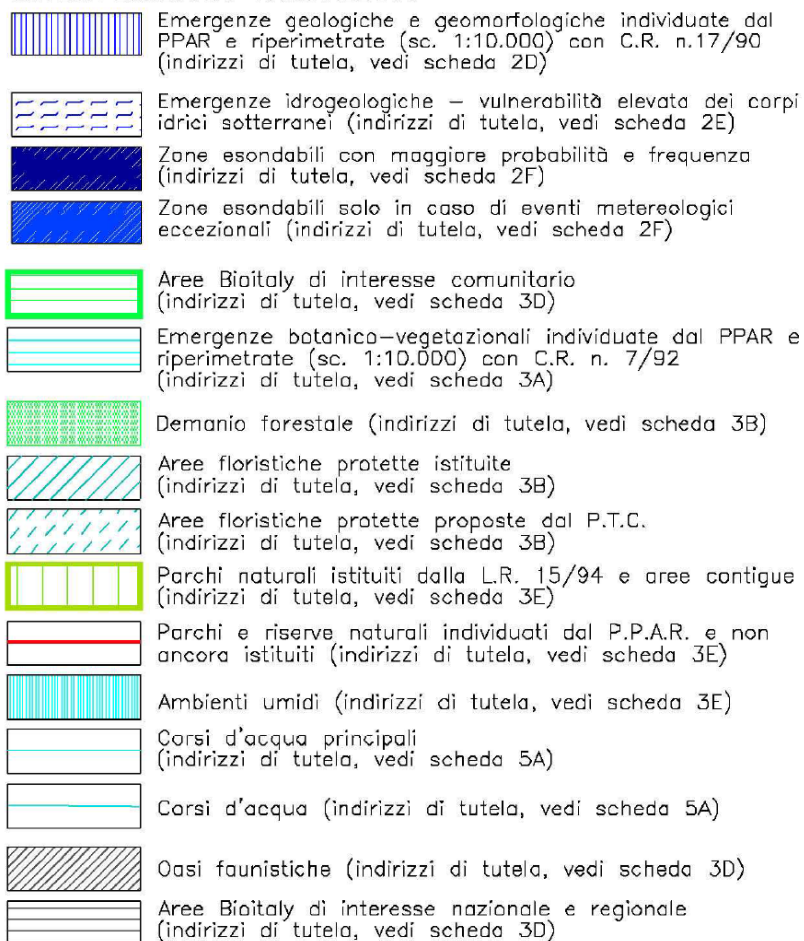 Emergenze geologiche e geomorfologiche individuate dal
PPAR e riperimetrate (sc. 1:10.000) con C.R. n.17/90
(indirizzi di tutela, vedi scheda 2D)
Emergenze idrogeologiche – vulnerabilità elevata dei corpi
idrici sotterranei (indirizzi di tutela, vedi scheda 2E)
Zone esondabili con maggiore probabilità e frequenza
(indirizzi di tutela, vedi scheda 2F)
Zone esondabili solo in caso di eventi metereologici
eccezionali (indirizzi di tutela, vedi scheda 2F)
Aree Bioitaly di interesse comunitario
(indirizzi di tutela, vedi scheda 3D)
Emergenze botanico–vegetazionali individuate dal PPAR e
riperimetrate (sc. 1:10.000) con C.R. n. 7/92
(indirizzi di tutela, vedi scheda 3A)
Demanio forestale (indirizzi di tutela, vedi scheda 3B)
Aree floristiche protette istituite
(indirizzi di tutela, vedi scheda 3B)
Aree floristiche protette proposte dal P.T.C.
(indirizzi di tutela, vedi scheda 3B)
Parchi naturali istituiti dalla L.R. 15/94 e aree contigue
(indirizzi di tutela, vedi scheda 3E)
Parchi e riserve naturali individuati dal P.P.A.R. e non
ancora istituiti (indirizzi di tutela, vedi scheda 3E)
Ambienti umidi (indirizzi di tutela, vedi scheda 3E)
Corsi d'acqua principali
(indirizzi di tutela, vedi scheda 5A)
Corsi d'acqua (indirizzi di tutela, vedi scheda 5A)
Oasi faunistiche (indirizzi di tutela, vedi scheda 3D)
Aree Bioitaly di interesse nazionale e regionale
(indirizzi di tutela, vedi scheda 3D)